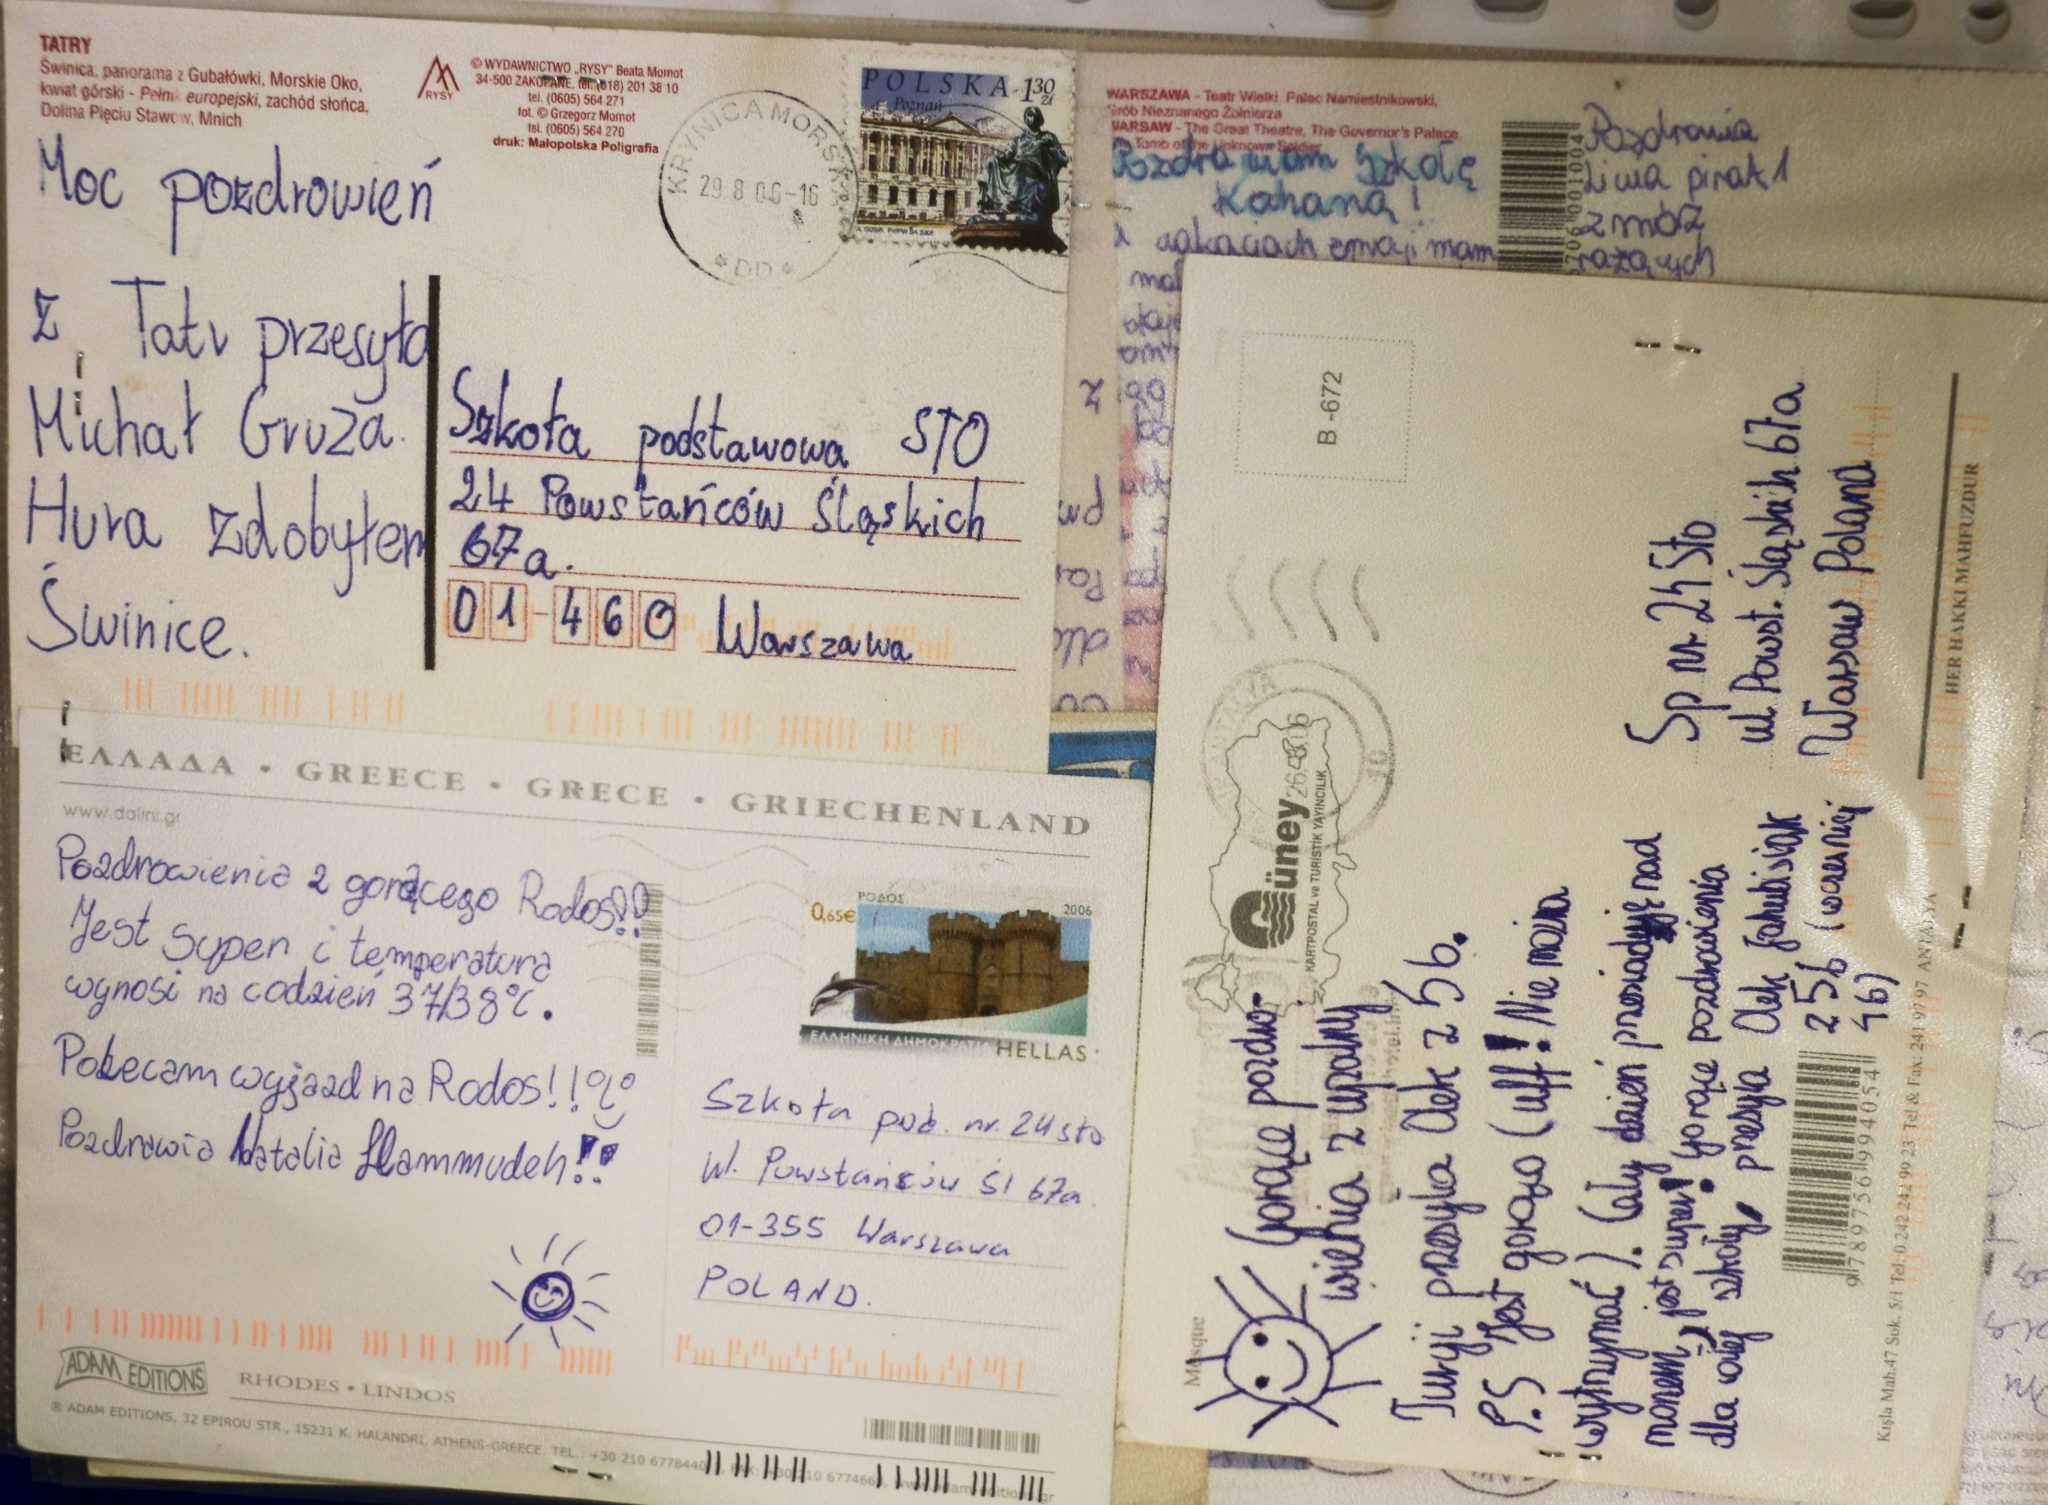 TATRY
Świnica, panorama z Gubałówki, Morskie Oko,
kwiat górski - Pełnik europejski, zachód słońca,
Dolina Pięciu Stawów, Mnich
RYSY
© WYDAWNICTWO „RYSY" Beata Momot
34-500 ZAKOPANE, tel. (018) 201 38 10
tel. (0605) 564 271
fot. © Grzegorz Momot
tel. (0605) 564 270
druk: Małopolska Poligrafia
KRYNICA MORSKA
29.8.06-16
* DD *
POLSKA 130 zł
Poznań
Moc pozdrowień
z Tatr przesyła
Michał Gruza.
Hura zdobyłem
Świnice.
Szkoła podstawowa STO
24 Powstańców Śląskich
67a.
01-460 Warszawa
WARSZAWA - Teatr Wielki, Pałac Namiestnikowski,
Grób Nieznanego Żołnierza
WARSAW - The Great Theatre, The Governor's Palace,
Tomb of the Unknown Soldier
Pozdrawiam Szkołę
Kohaną!
Pozdrowia
z mórz
ΕΛΛΑΔΑ • GREECE • GRECE • GRIECHENLAND
www.dalini.gr
Pozdrowienia z gorącego Rodos!!
Jest super i temperatura
wynosi na codzień 37/38°C.
Polecam wyjazd na Rodos!!
Pozdrawia Natalia Hammudeh!!
ΡΟΔΟΣ
0,65€
2006
ΕΛΛΗΝΙΚΗ ΔΗΜΟΚΡΑΤΙΑ HELLAS
Szkoła pod. nr. 24 sto
ul. Powstańców Śl 67a.
01-355 Warszawa
POLAND.
ADAM EDITIONS
RHODES • LINDOS
® ADAM EDITIONS, 32 EPIROU STR., 15231 K. HALANDRI, ATHENS-GREECE. TEL.: +30 210 6778440
B-672
26.8.06
10
Güney
KARTPOSTAL ve TURİSTİK YAYINCILIK
Mosque
Gorące pozdro-
wienia z upalnej
Turcji przesyła Olek z 5b.
P.S Jest gorąco (uff! Nie można
wytrzymać). Cały dzień przesiaduję nad
morzem, jest super! Gorące pozdrowienia
dla całej szkoły, przesyła Olek Jakubisiak
z 5b (wcześniej
4b)
Sp nr. 24 Sto
ul. Powst. Śląskich 67a
Warsaw Poland
HER HAKKI MAHFUZDUR
9 789756 994054
Kışla Mah.47 Sok. 5/1 Tel: 0.242 242 99 23 Tel & Fax: 241 97 97 ANTALYA